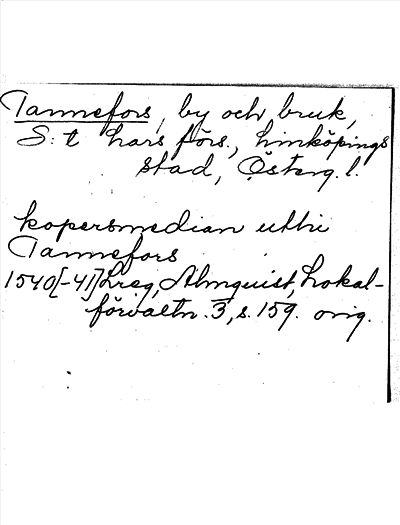 Tannefors, by och bruk,
S:t Lars förs., Linköpings
stad, Österg. l.
kopersmedian utthi
Tannefors
1540[-41] Lreg, Almquist, Lokal-
förvaltn. 3, s. 159. orig.